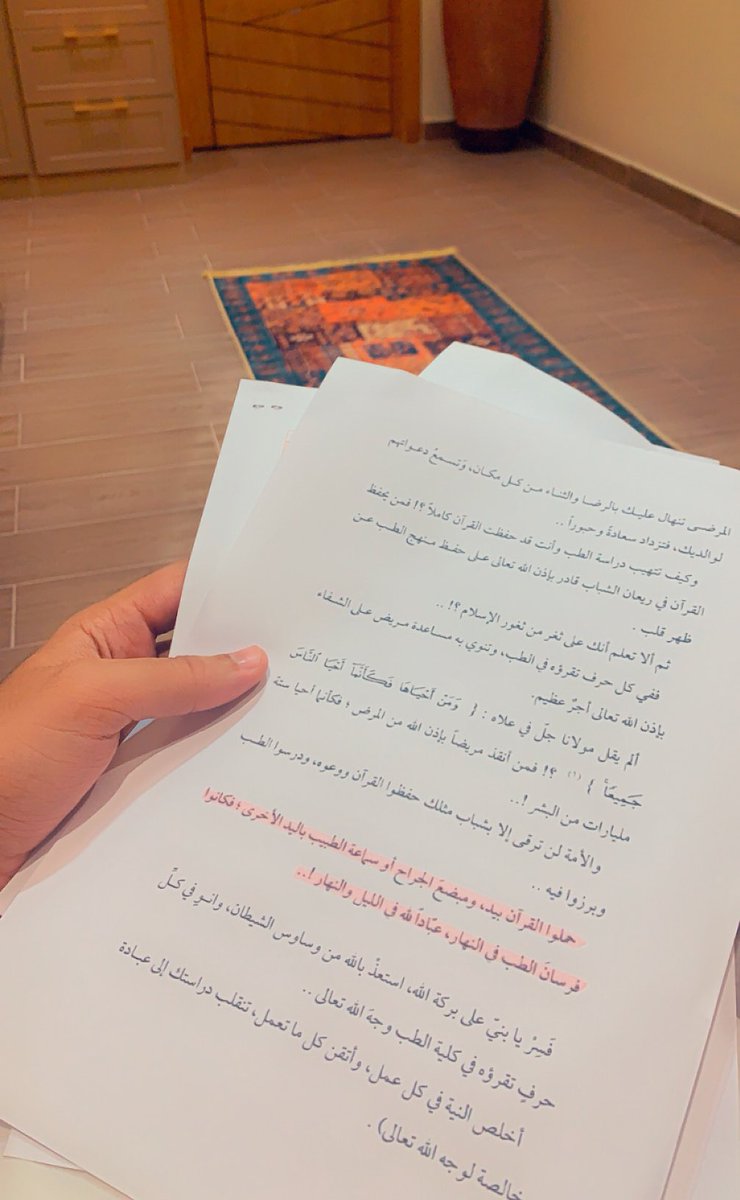 المرضى تنهال عليك بالرضا والثناء من كل مكان، وَتسمعُ دعواتهم
لوالديك، فتزداد سعادةً وحبوراً ..
وكيف تتهيب دراسة الطب وأنت قد حفظت القرآن كاملاً ؟! فمن يحفظ
القرآن في ريعان الشباب قادر بإذن الله تعالى على حفظ منهج الطب عن
ظهر قلب .
ثم ألا تعلم أنك على ثغر من ثغور الإسلام ؟! ..
ففي كل حرف تقرؤه في الطب، وتنوي به مساعدة مريض على الشفاء
بإذن الله تعالى أجرٌ عظيم.
ألم يقل مولانا جلّ في علاه : { وَمَنْ أَحْيَاهَا فَكَأَنَّمَا أَحْيَا النَّاسَ
جَمِيعًا } (١) ؟! فمن أنقذ مريضاً بإذن الله من المرض ؛ فكأنما أحيا ستة
مليارات من البشر !..
والأمة لن ترقى إلا بشباب مثلك حفظوا القرآن ووعوه، ودرسوا الطب
وبرزوا فيه ..
حملوا القرآن بيد، ومبضعَ الجراح أو سماعة الطبيب باليد الأخرى ؛ فكانوا
فرسانَ الطب في النهار، عبّاداً لله في الليل والنهار !..
فَسِرْ يا بنيّ على بركة الله، استعذْ بالله من وساوس الشيطان، وانوِ في كلِّ
حرفٍ تقرؤه في كلية الطب وجهَ الله تعالى ..
أخلص النية في كل عمل، وأتقن كل ما تعمل، تنقلب دراستك إلى عبادة
خالصة لوجه الله تعالى) .